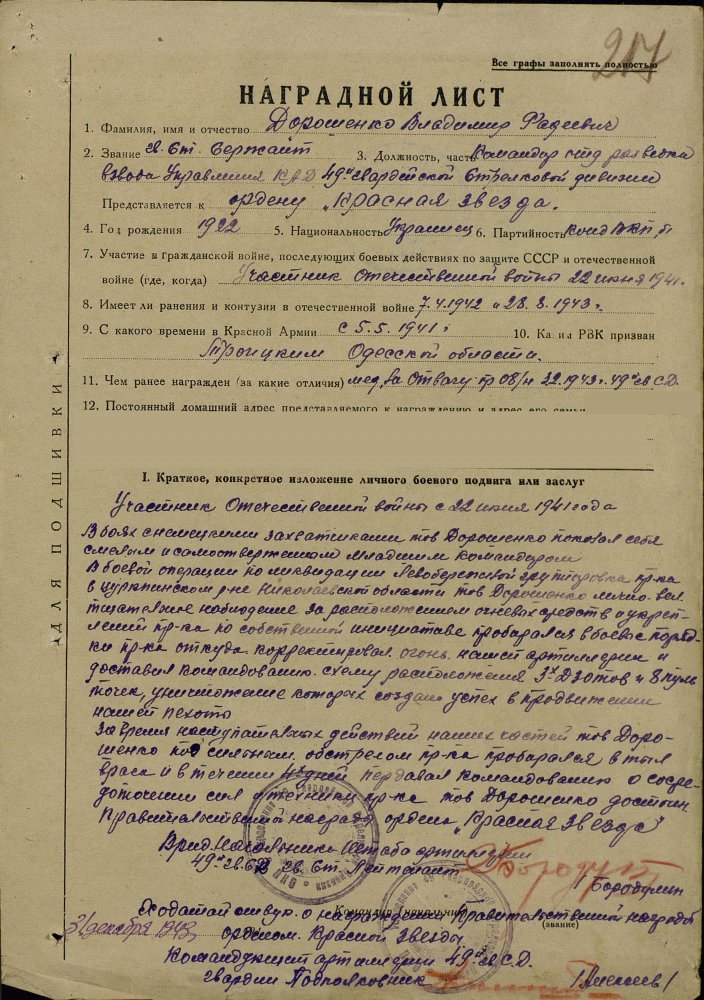 217
Все графы заполнять полностью
НАГРАДНОЙ ЛИСТ
1. Фамилия, имя и отчество Дорошенко Владимир Фадеевич
2. Звание гв. Ст. Сержант 3. Должность, часть Командир отд разведки
взвода Управления КАД 49й гвардейской Стрелковой дивизии
Представляется к ордену "Красная звезда.
4. Год рождения 1922 5. Национальность Украинец 6. Партийность Канд ВКП/б
7. Участие в гражданской войне, последующих боевых действиях по защите СССР и отечественной
войне (где, когда) Участник Отечественной войны 22 июня 1941.
8. Имеет ли ранения и контузии в отечественной войне 7.4.1942 и 28.8.1943 г.
9. С какого времени в Красной Армии с 5.5.1941 г 10. Каким РВК призван
Троицким Одесской области.
11. Чем ранее награжден (за какие отличия) мед, За Отвагу пр 08/н 22.1943 г. 49 гв СД
12. Постоянный домашний адрес представляемого к награждению и адрес его семьи
ДЛЯ ПОДШИВКИ
I. Краткое, конкретное изложение личного боевого подвига или заслуг
Участник Отечественной войны с 22 июня 1941 года
В боях с немецкими захватчиками тов Дорошенко показал себя
смелым и самоотверженным младшим командиром
В боевой операции по ликвидации Левобережной группировки пр-ка
в р-не Николаевской области тов Дорошенко лично вел
тщательное наблюдение за расположением огневых средств и укреп-
лений пр-ка по собственной инициативе пробирался в боевые поряд-
ки пр-ка откуда корректировал огонь нашей артилерии и
доставил командованию схему расположения 3х Дзотов и 8 пул
точек, уничтожение которых создало успех в продвижении
нашей пехоты
За время наступательных действий наших частей тов Доро-
шенко под сильным обстрелом пр-ка пробирался в тыл
врага и в течении 4х дней передавал командованию о сосре-
доточении сил и техники пр-ка тов Дорошенко достоин
Правительственной награды ордена "Красная Звезда"
Врид. Начальника Штаба артилерии
49й гв. СД гв. Ст. Лейтенант
/Бородулин
Командир начальник
(звание)
Ходатайствую о награждении Правительственной наградой
орденом Красной Звезды
31 декабря 1943
Командующий артилерии 49й гв С.Д.
гвардии Подполковник /Алексеев/